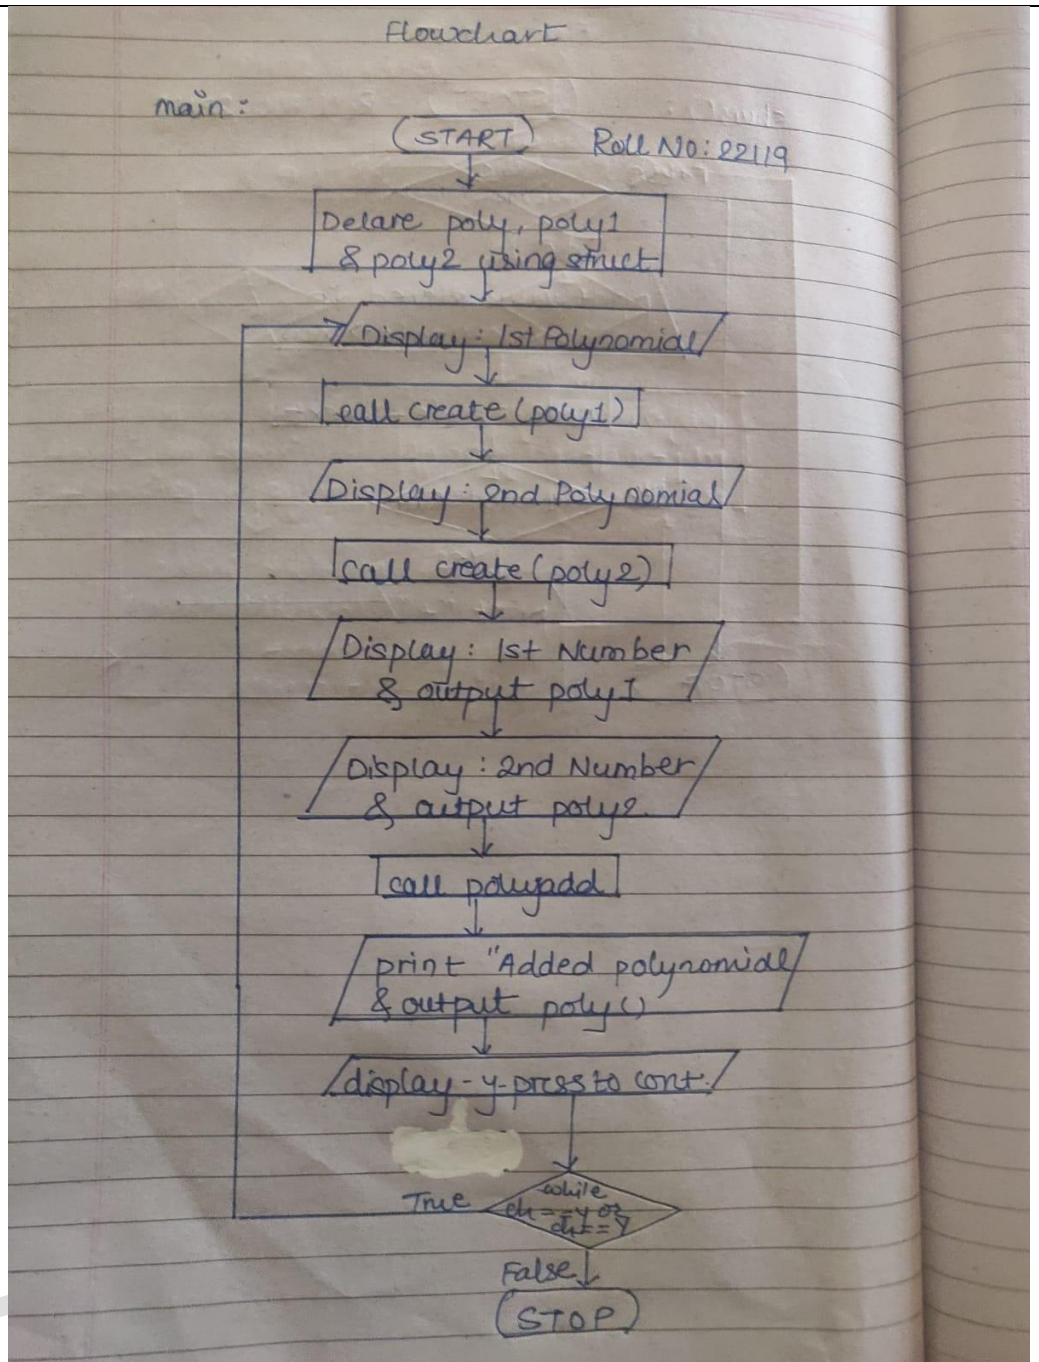 Flowchart
main:
START
Roll No: 22119
Delare poly, poly1
& poly2 using struct
Display: 1st Polynomial
call create (poly1)
Display: 2nd Polynomial
call create (poly2)
Display: 1st Number
& output poly1
Display: 2nd Number
& output poly2
call polyadd
print "Added polynomial
& output poly()
display - y-press to cont.
while
ch == y or
ch == Y
True
False
STOP